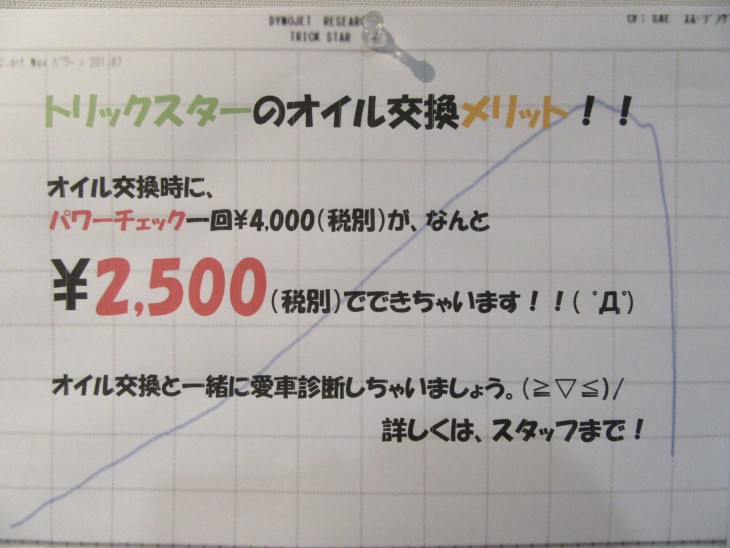 DYNOJET RESEARC
TRICK STAR
CF: SAE スムージング
Max パワー = 201.87
トリックスターのオイル交換メリット！！
オイル交換時に、
パワーチェック一回¥4,000(税別)が、なんと
¥2,500(税別)でできちゃいます！！( ﾟДﾟ)
オイル交換と一緒に愛車診断しちゃいましょう。(≧▽≦)/
詳しくは、スタッフまで！